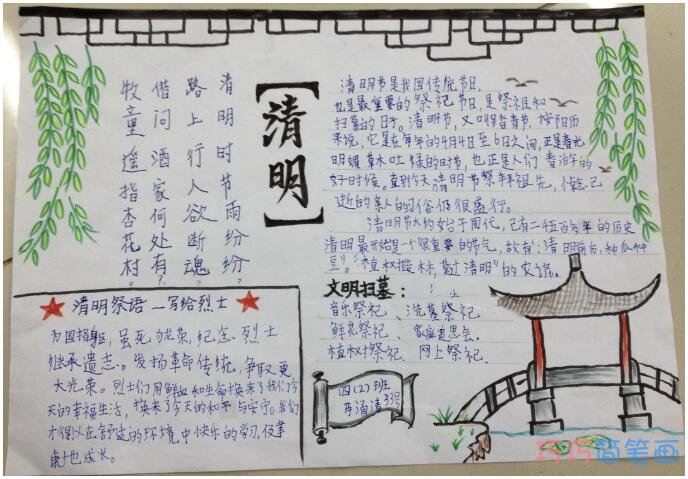 清明时节雨纷纷，
路上行人欲断魂。
借问酒家何处有，
牧童遥指杏花村。
【清明】
清明节是我国传统节日，
也是最重要的祭祀节日，是祭祖和
扫墓的日子。清明节，又叫踏青节，按阳历
来说，它是在每年的4月4日至6日之间，正是春光
明媚草木吐绿的时节，也正是人们春游的
好时候。直到今天，清明节祭拜祖先，悼念已
逝的亲人的习俗仍很盛行。
清明节大约始于周代，已有二千五百多年的历史
清明最开始是一个很重要的节气，故有"清明前后，种瓜种
豆"。"植树造林，莫过清明"的农谚。
文明扫墓：
音乐祭祀、洗墓祭祀
鲜花祭祀、家庭追思会。
植树祭祀、网上祭祀
四(2)班
马涌清
33号
清明祭语—写给烈士
为国捐躯，虽死犹荣，纪念烈士
继承遗志。发扬革命传统，争取更
大光荣。烈士们用鲜血和生命换来了我们今
天的幸福生活，换来了今天的和平与安宁。我们
才得以在舒适的环境中快乐的学习，健
康地成长。
巧巧简笔画